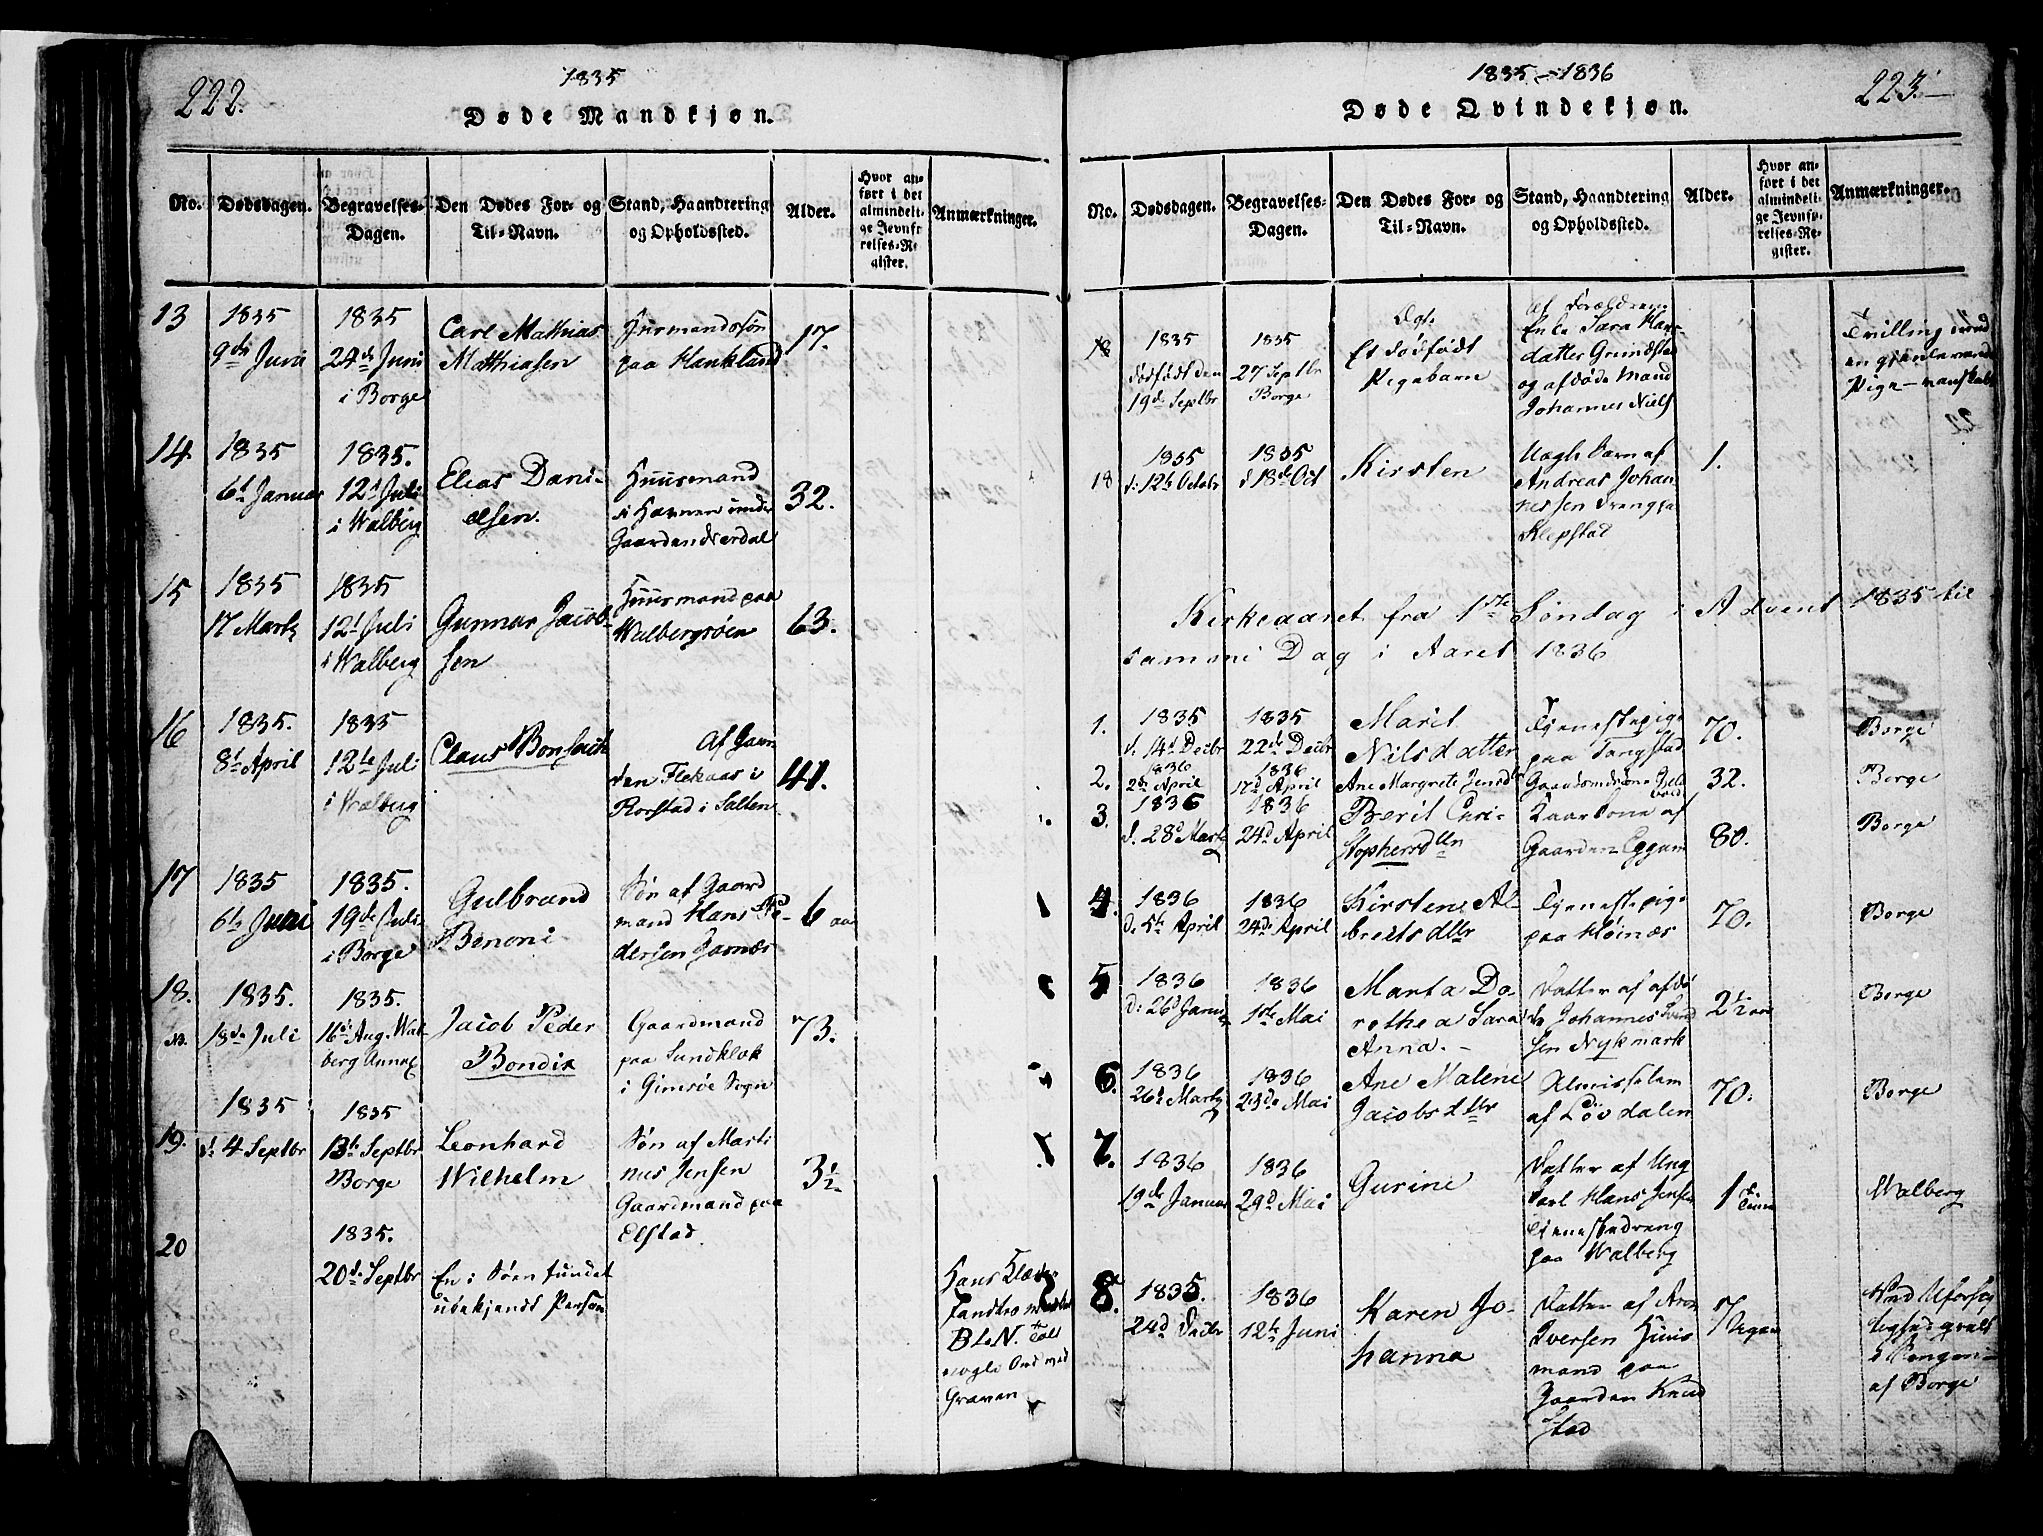 222.
1835
Døde Mandkjøn.
No.
Dødsdagen.
Begravelses-
Dagen.
Den Dødes For- og
Til-Navn.
Stand, Haandtering
og Opholdssted.
Alder.
Hvor an-
ført i det
almindeli-
ge Jevnfø-
relses-Re-
gister.
Anmærkninger.
13
1835
9de Juni
1835
24de Juni
i Borge
Carl Mathias
Mathiasen
Huusmandssøn
paa Haukland
17.
14.
1835
6t Januar
1835.
12t Juli
i Walberg
Elias Dani-
elsen.
Huusmand
i Havnen under
Gaarden Nærdal
32.
15
1835
17 Marts
1835
12t Juli
i Walberg
Gunnar Jacob-
sen
Huusmand paa
Walbergsøen
63.
16
1835.
8t April
1835
12te Juli
i Walberg
Claus
Af Gaar
den Flekaas i
Rorstad i Salten
41.
17
1835
6te Juni
1835.
19de Juli
i Borge
Gulbrand
Benoni
Søn af Gaard
mand Hans Pe-
dersen
6 aar
18.
NB.
1835.
18de Juli
1835.
16de Aug. Wal-
berg Annex
Jacob Peder
Bondix
Gaardmand
paa Sundklak
i Gimsøe Sogn
73.
19.
1835
d. 4 Septbr
1835
13de Septbr
Borge
Leonhard
Wilhelm
Søn af Marti
nus Jensen
Gaardmand paa
Elstad.
3½
20
1835.
20de Septbr
En i Søen fundet
ubekjendt Person
Hans
BLN.
nogle Ord ved
Graven
1835-1836
223.
Døde Qvindekjøn.
No.
Dødsdagen.
Begravelses-
Dagen.
Den Dødes For- og
Til-Navn.
Stand, Haandtering
og Opholdssted.
Alder.
Hvor an-
ført i det
almindeli-
ge Jevnfø-
relses-Re-
gister.
Anmærkninger.
18
1835
dødfødt den
19de Septbr
1835
27 Septbr
Borge
Egt.
Et dødfødt
Pigebarn
Af Forældrene
Enke Sara Hans-
datter Grundstad
og afdøde Mand
Johannes Niels
Tvilling
Pige
18
1835
d. 12te Octobr
1835
d 18de Oct
Kirsten
Uægte Barn af
Andreas Johan
nessen Dreng paa
Klepstad
1.
Kirkeaaret fra 1ste Søndag i Advent 1835 til
samme Dag i Aaret 1836
1.
1835
d. 14d Decbr
1835
22de Decbr
Marit
Nilsdatter
Tjenestepige
paa Tangstad
70.
Borge
2.
1836
2de April
1836
17d April
Ane Margrete Jensdtr
32.
Borge
3.
1836
d. 28d Marts
1836
24d April
Berit Chri-
stophersdttr
Kaarkone af
Gaarden Eggum
80.
Borge
4.
1836
d. 5te April
1836
24de April
Kirsten Al-
breitsdttr
Tjenestepige
paa Høinæs
70.
Borge
5
1836
d: 26d Januar
1836
1ste Mai
Marta Do-
rothea Sara
Anna.
Datter af afdø
de Johannes
sen Nykmark
2½ aar
Borge
6.
1836
26d Marts
1836
23de Mai
Ane Malene
Jacobsdttr
Almisselem
af Løvdalen
70.
Borge
7.
1836
19de Januar
1836
29d Mai
Gurine
Datter af Ung
karl Hans Jensen
Tjenestedreng
paa Walberg
1
Walberg
8.
1835.
24d Decbr
1836
12te Juni
Karen Jo-
hanna
Datter af Aron
Iversen Huus
mand paa
Gaarden Knud
stad
7 Uger
Ved Uforsig
tighed qvalt
i Sengen
af Borge